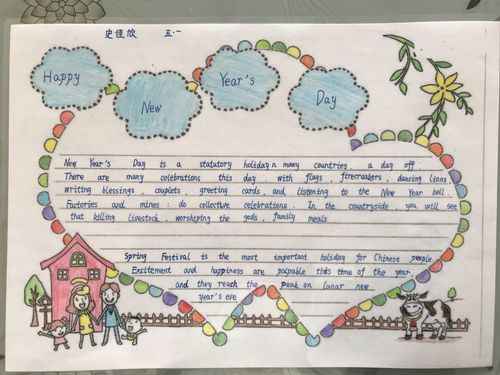 史佳欣 五.一
Happy
New
Year's
Day
New Year's Day is a statutory holiday n many countries a day off
There are many celebrations this day with flags, firecrackers, dancing lions
writing blessings, couplets, greeting cards, and listening to the New Year bell
Factories and mines do collective celebrations. In the countryside, you will see
that killing livestock, worsheping the gods, family meals
Spring Festival is the most important holiday for Chinese people
Excitement and happiness are palpable this time of the year
and they reach the peak on lunar new
year's eve